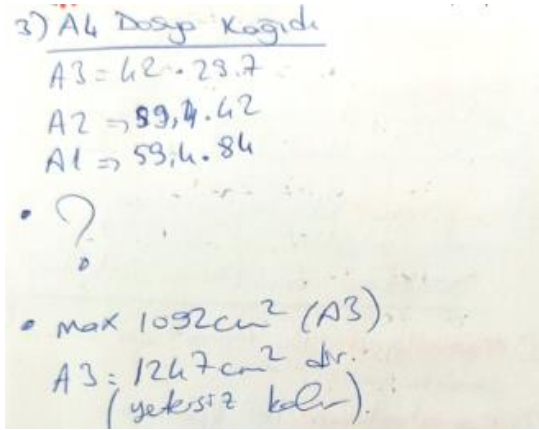 3) A4 Dosya Kağıdı
A3 = 42 . 29.7
A2 => 59,4 . 42
A1 => 59,4 . 84
• ?
• max 1092cm² (A3)
A3 = 1247cm² dır.
(yetersiz kalır).